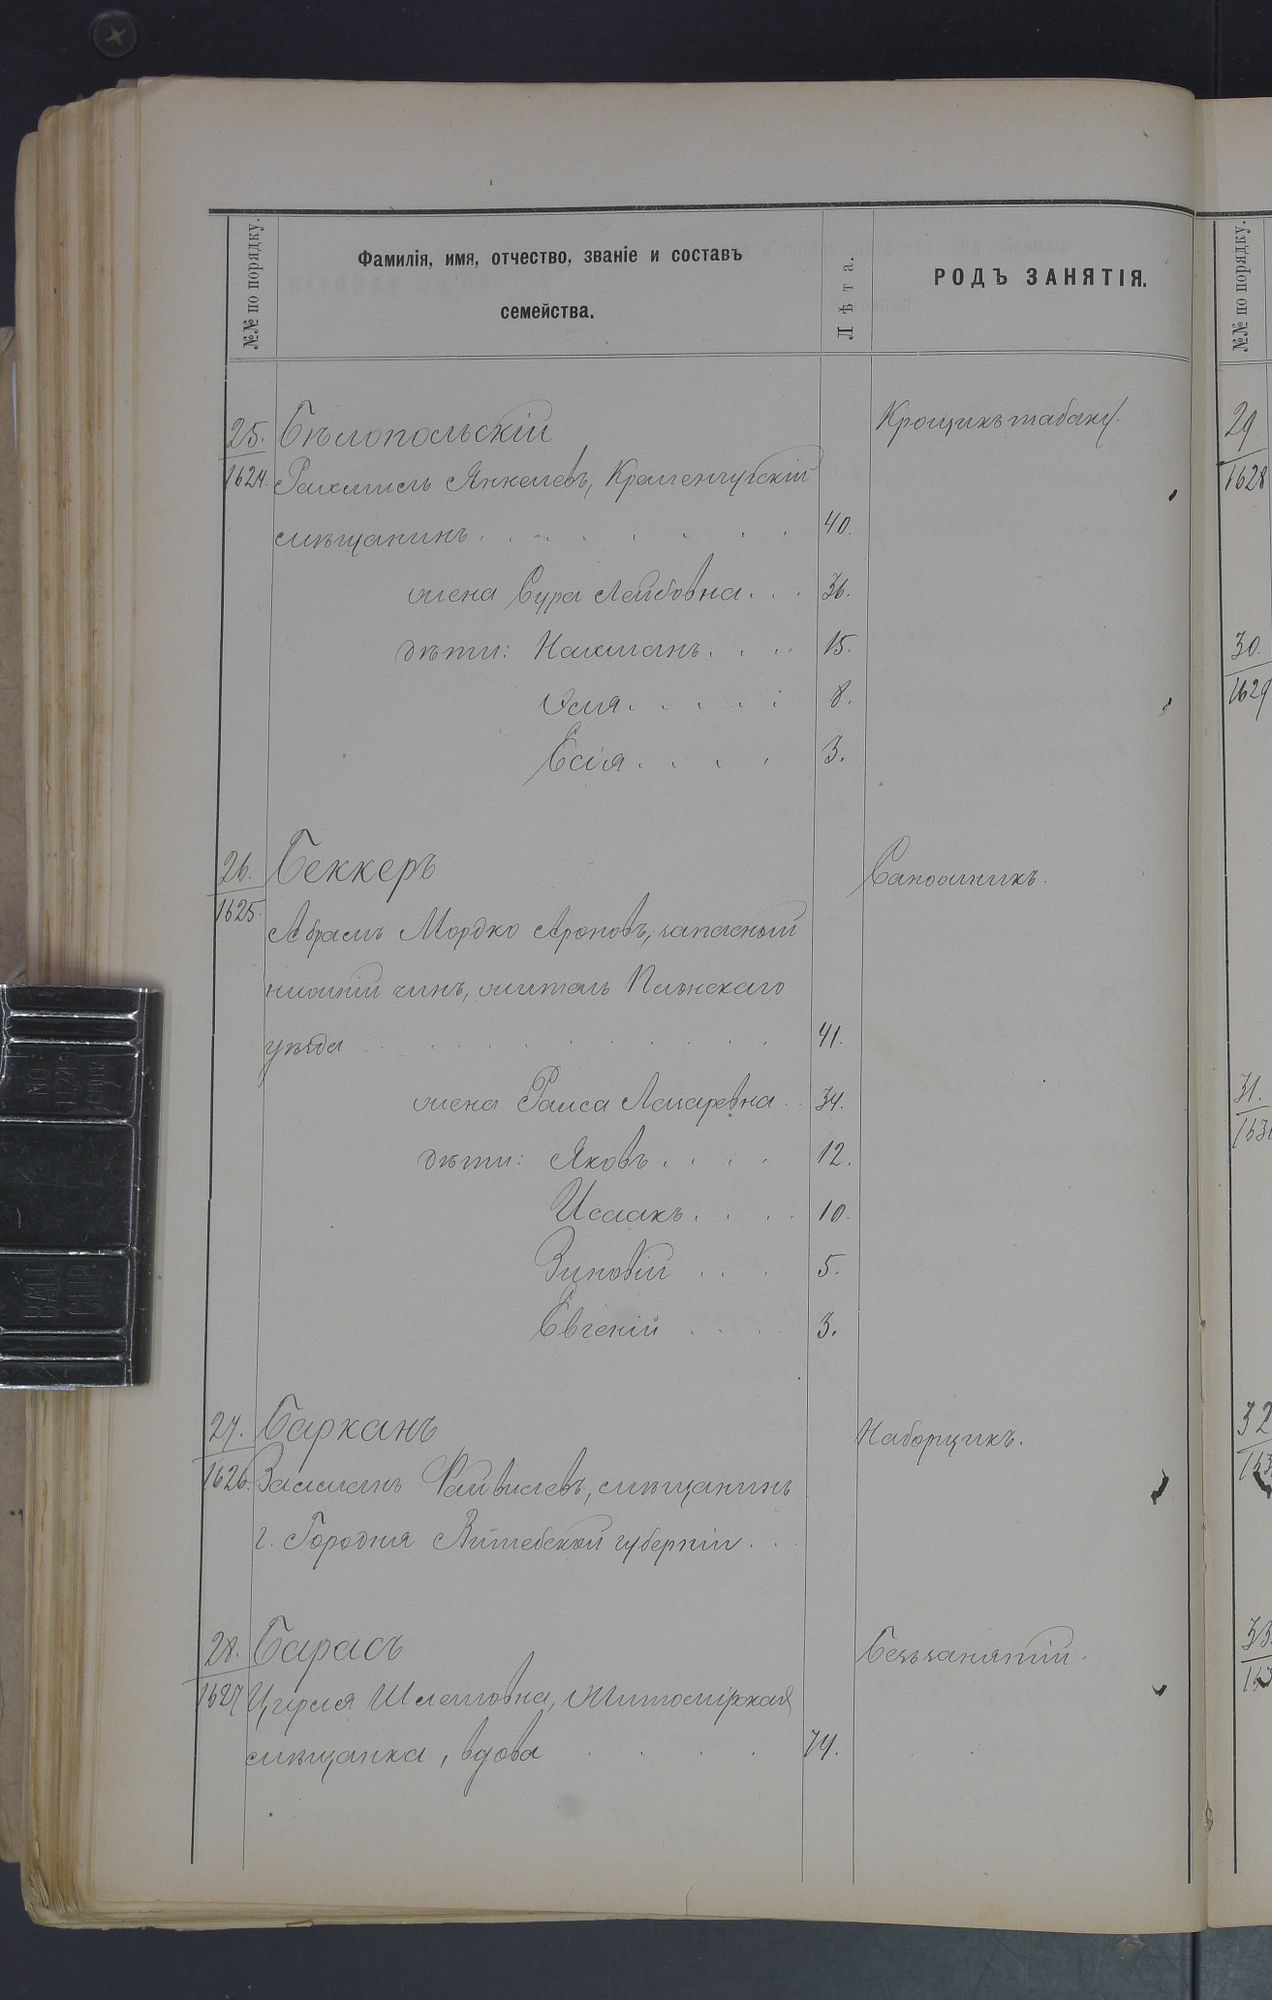 №№ по порядку.
Фамилія, имя, отчество, званіе и составъ
семейства.
Лѣта.
РОДЪ ЗАНЯТІЯ.
25. Бѣлопольскій Крощикъ табаку.
1624. Рахмиль Янкелевъ, Кременчугскій
мѣщанинъ 40.
жена Сура Лейбовна 36.
дѣти: Нахманъ 15.
8.
Есія 3.
26. Беккеръ Сапожникъ.
1625. Абрамъ Мордко Ароновъ, запасный
нижній чинъ, житель
уѣзда 41.
жена Раиса Лазаревна 34.
дѣти: Яковъ 12.
Исаакъ 10.
Зиновій 5.
Евгеній 3.
27. Барканъ Наборщикъ.
1626. Залманъ Файвилевъ, мѣщанинъ
г. Городня Витебской губерніи
28. Барасъ Безъ занятій.
1627 Шлемовна, Житомірская
мѣщанка, вдова 74.
№№ по порядку.
29
1628
30.
1629
31.
32
33
BALL
CLIP